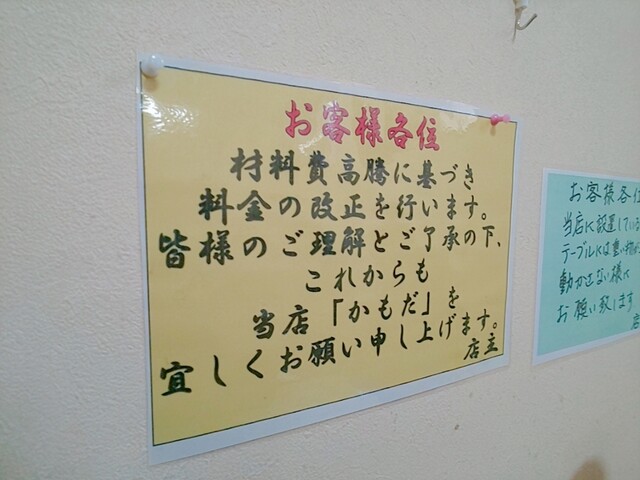 お客様各位
材料費高騰に基づき
料金の改正を行います。
皆様のご理解とご了承の下、
これからも
当店「かもだ」を
宜しくお願い申し上げます。
店主
お客様各位
当店に設置している
テーブルには重い物が
動かさない様に
お願い致します
店